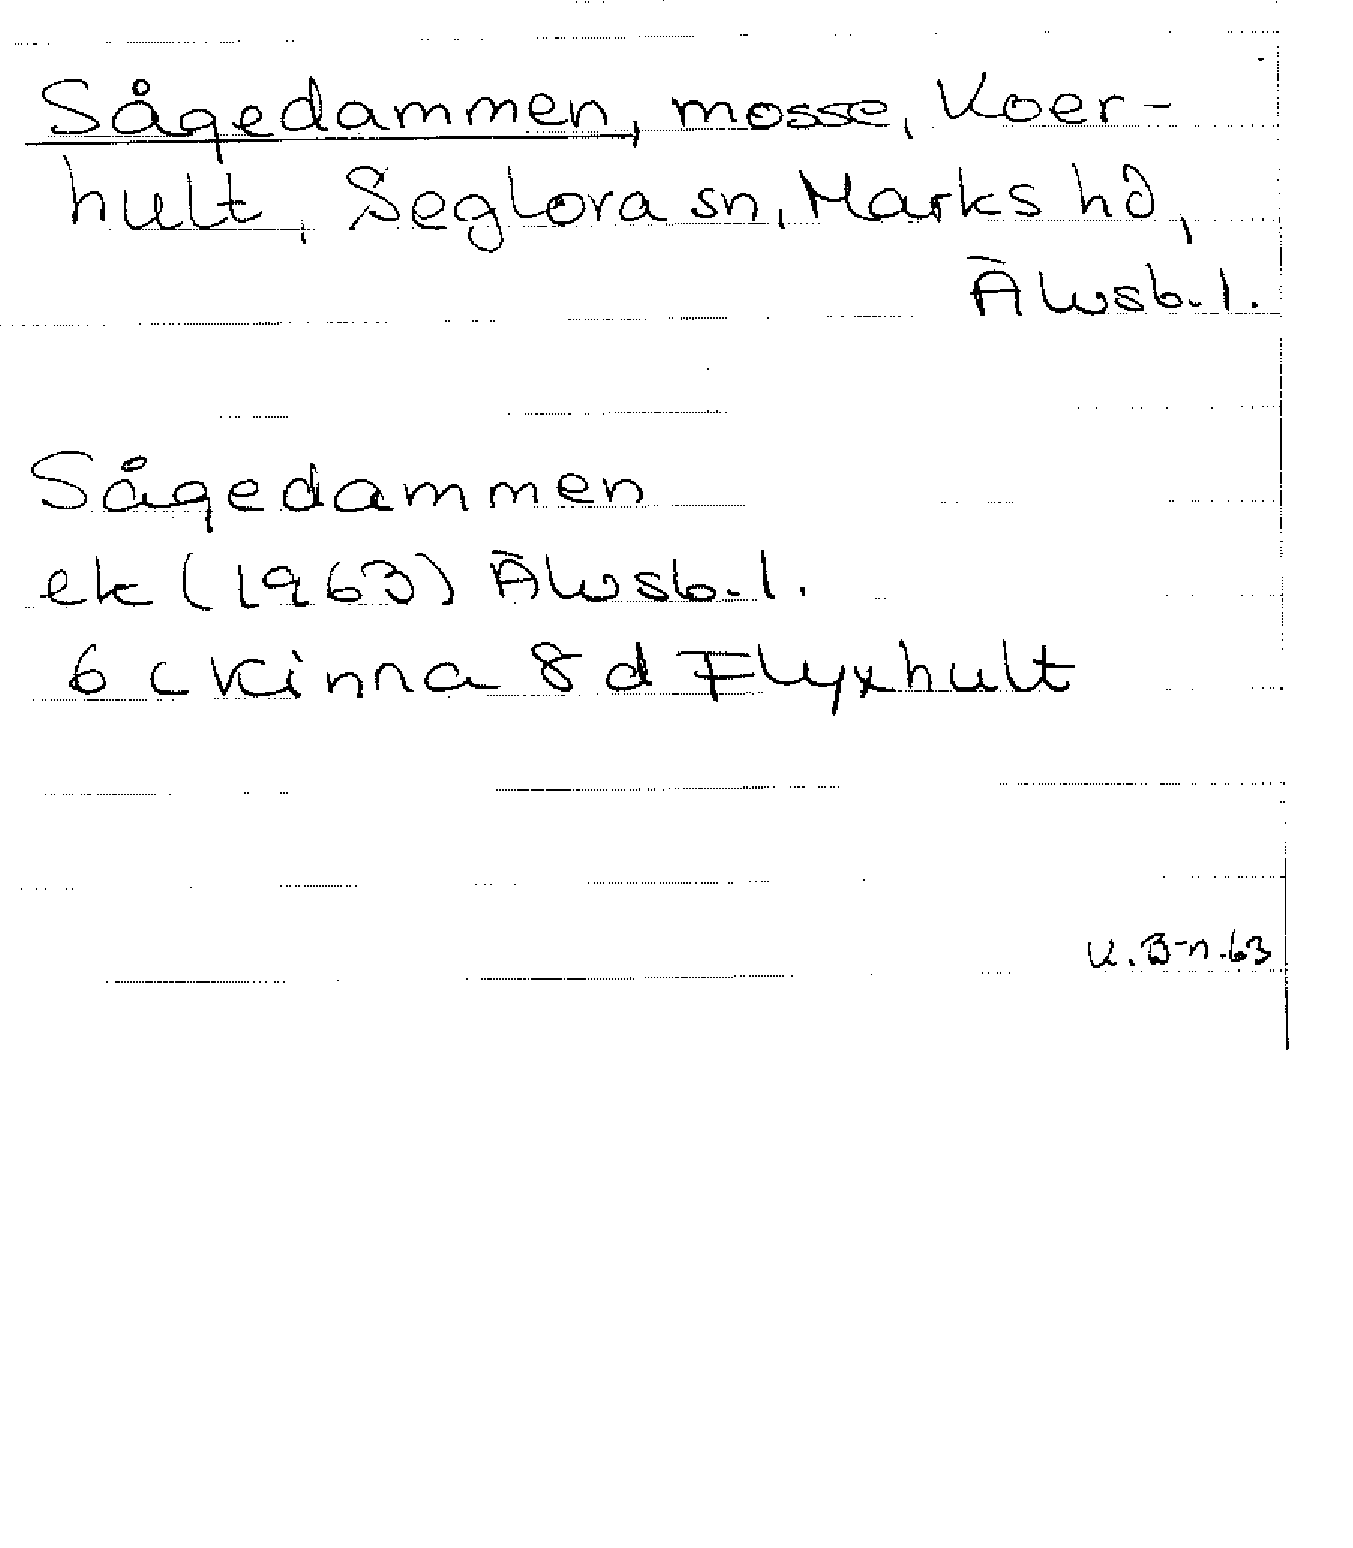 Sågedammen, mosse, Koer-
hult, Seglora sn, Marks hd,
Älvsb. l.
Sågedammen
ek (1963) Älvsb. l.
6 c Kinna 8 d Flyxhult
K. B-n. 63